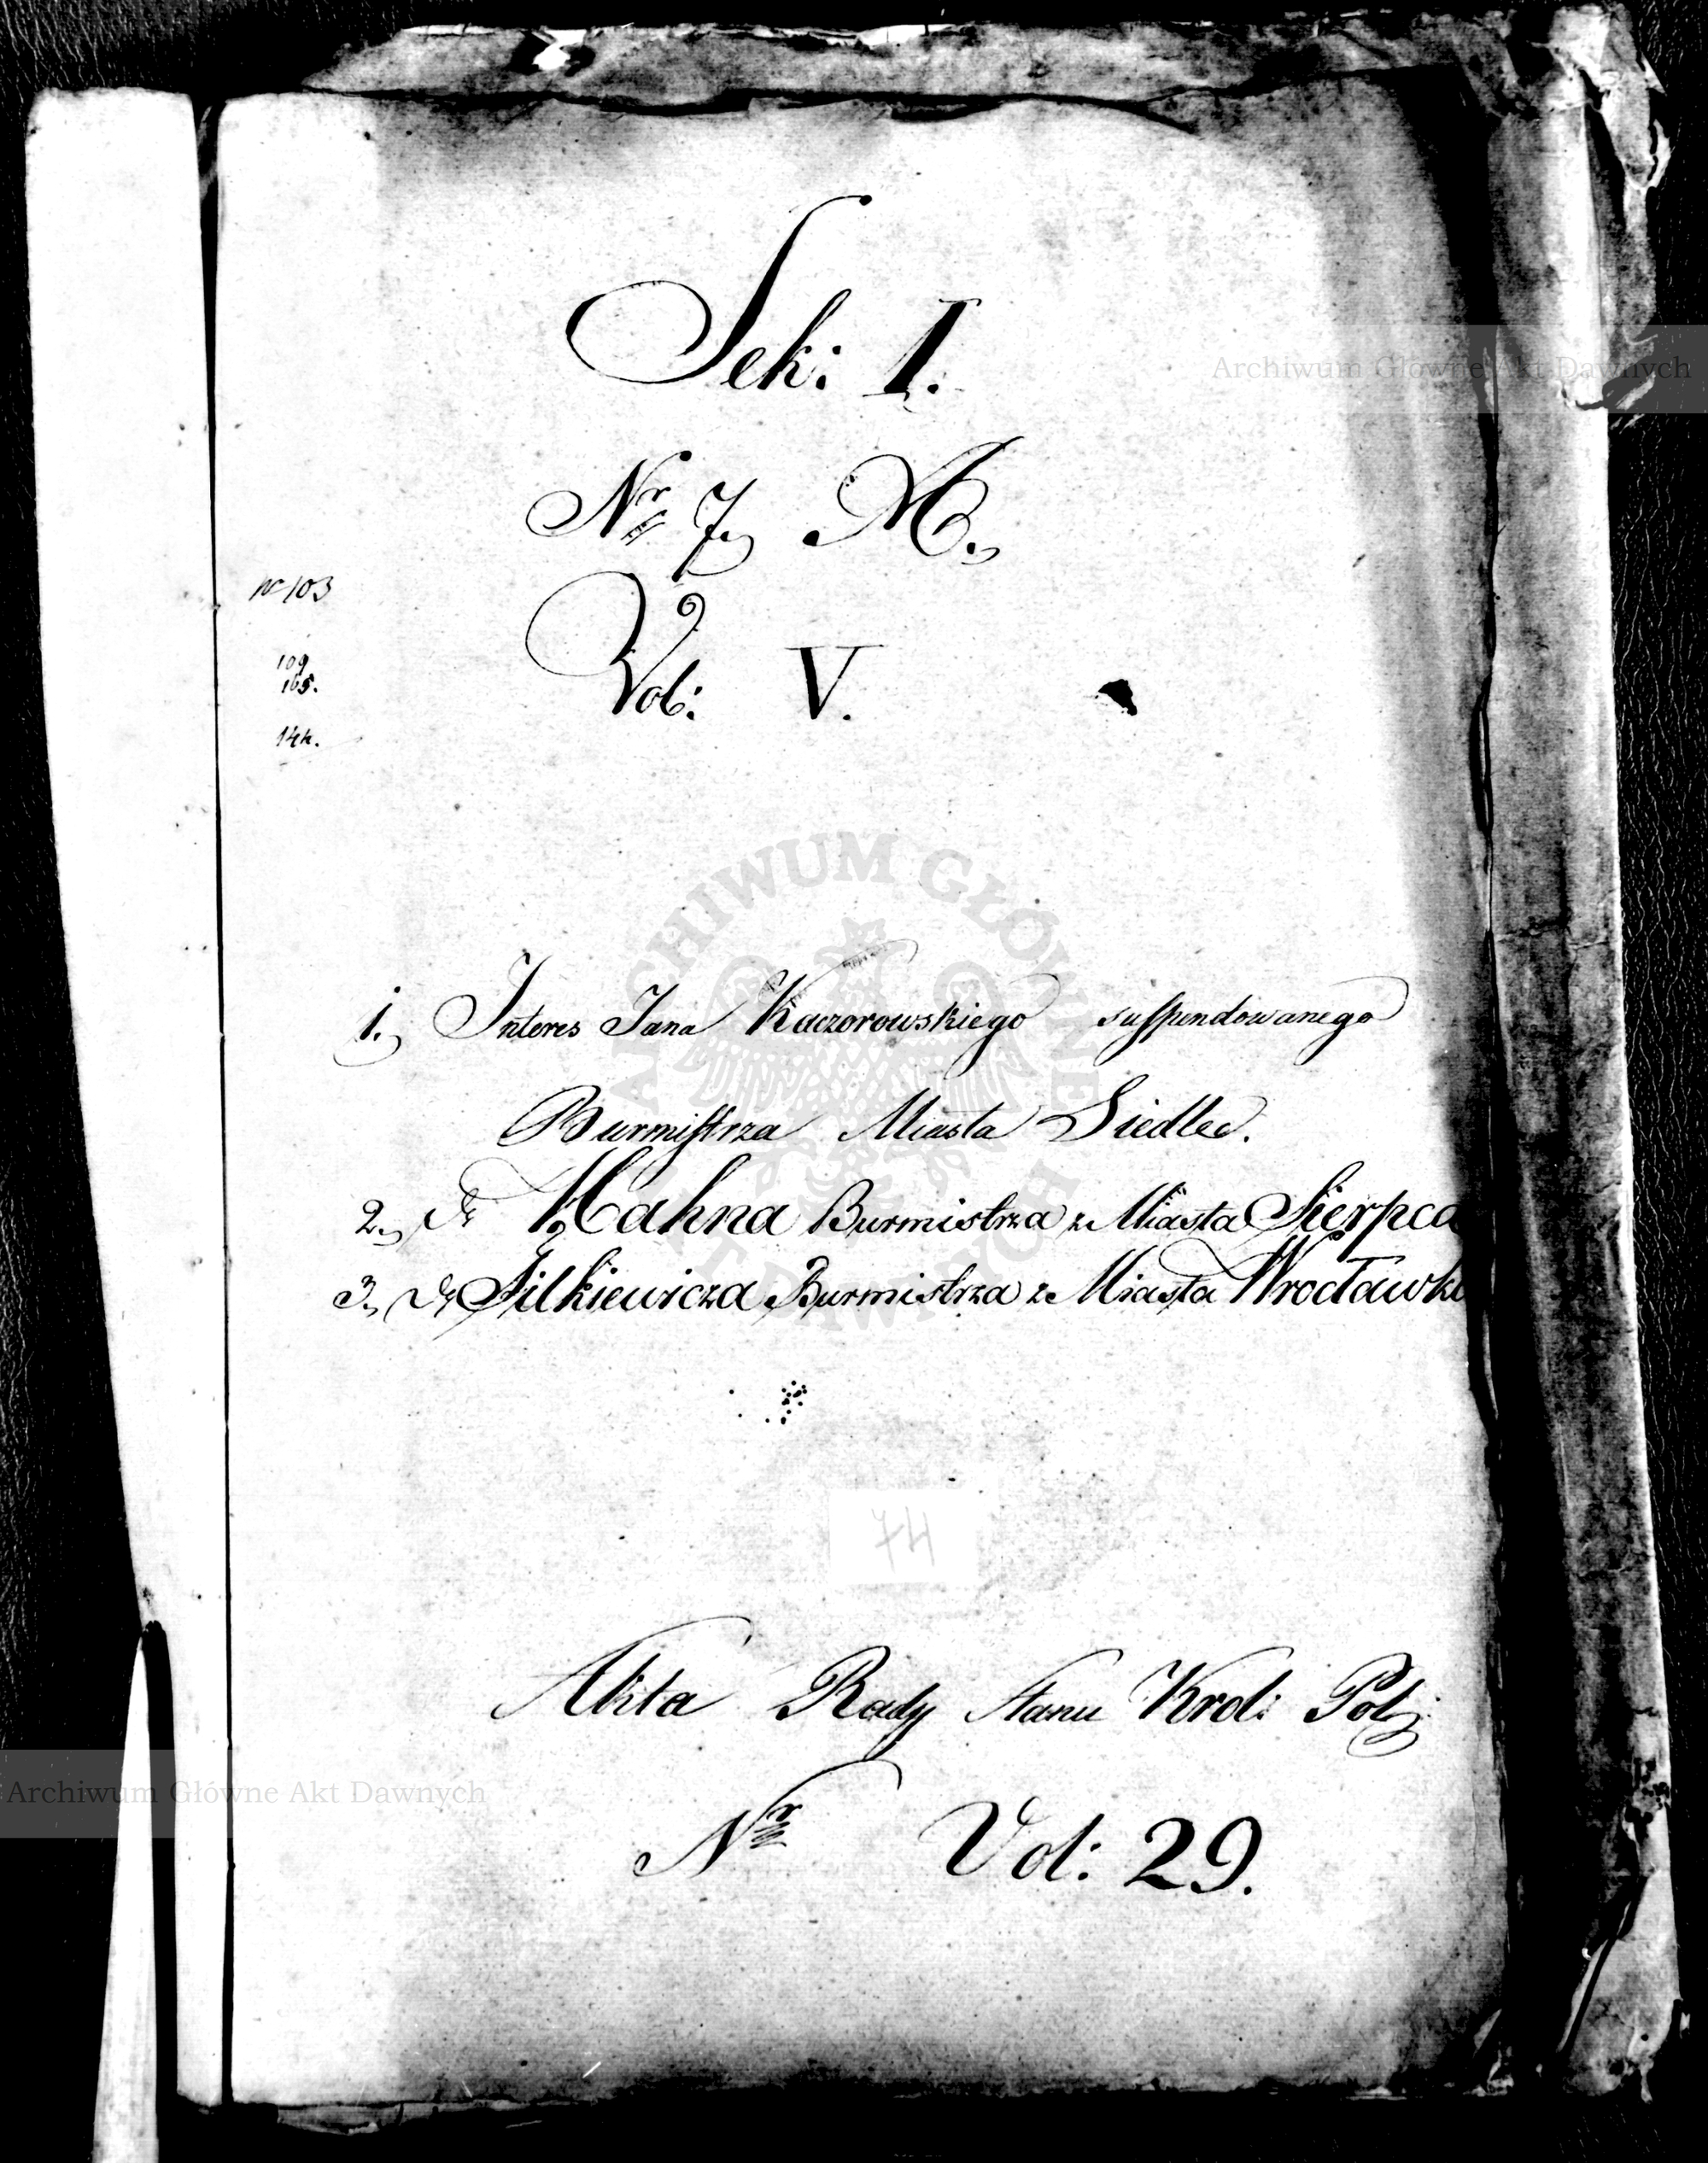 Sek: I.
Archiwum Główne Akt Dawnych
Nr 7. A.
N 103
109
165.
Vol: V.
144.
ARCHIWUM GŁÓWNE AKT DAWNYCH
1. Interes Jana Kaczorowskiego suspendowanego
Burmistrza Miasta Siedlec.
2. Dr Hahna Burmistrza z Miasta Sierpca
3. Dr Silkiewicza Burmistrza z Miasta Wrocławka
74
Akta Rady Stanu Krol: Pol:
Archiwum Główne Akt Dawnych
Nr Vol: 29.